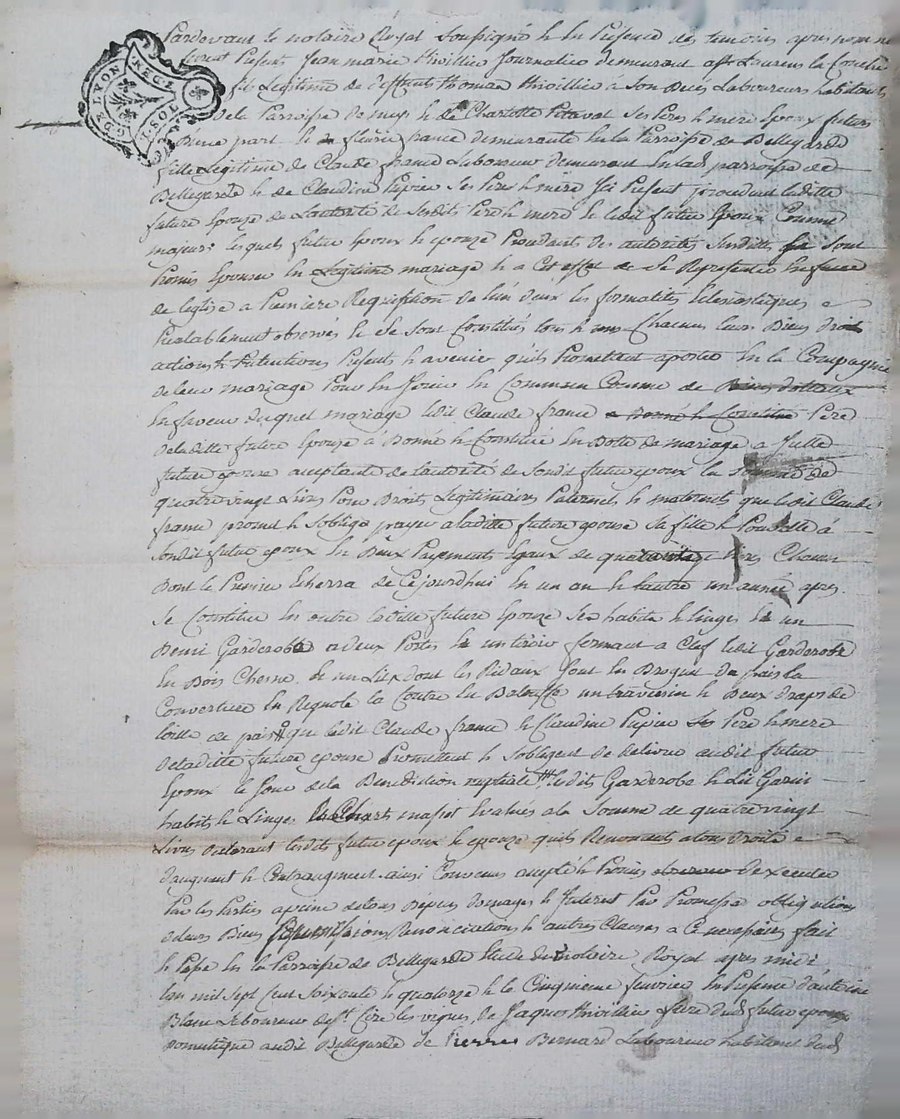 GEN. DE LYON
I. SOL
Pardevant le notaire Royal Soussigné & en Presence des temoins apres nommé
furent Presents Jean marie thivillier Journalier demeurant a St Laurens la Conche
fils Legitime de deffunts thomas thivillier a son deces Laboureur habitants
de la Parroisse de & de Charlotte Pitaval ses Pere & mere Epoux futur
d'une part & fleurie france demeurante En la Parroisse de Bellegarde
fille Legitime de Claude france Laboureur demeurant En lad parroisse de
Bellegarde & de Claudine Papier ses Pere & mere Ici Present procedant laditte
future Epouze de Lautorité de sesdits Pere & mere & ledit futur Epoux Comme
majeur lesquels futur Epoux & epouze Procedants des autorités Susdittes se sont
Promis Epouser En Legitime mariage & a Cet effet de Se Representer En face
de leglise a Premiere Requisition de lun deux les formalités Eclesiastiques
Prealablement observés & Se Sont Constitués tous & uns Chacuns leurs Biens droits
actions & Pretentions Presents & avenir quils Promettent aporter En la Compagnie
de leur mariage Pour En Jouir En Commun Comme de Biens dottaux
En faveur duquel mariage ledit Claude france a Donné & Constitué Pere
de laditte future Epouze a Donné & Constitué En Dotte de mariage a Saditte
future epouse acceptant de lautorité de Sondit futur epoux la Somme de
quatre vingt Livres Pour Droits Legitimaires Paternels & maternels que ledit Claude
france promet & Soblige payer a laditte future epouse Sa fille & Pour elle à
Sondit futur epoux En Deux Payements Egaux de quarante Livres Chacun
Dont le Premier Echerra de Cejourdhui En un an & lautre un année apres
Se Constitue En outre laditte future Epouze Ses habits & linges & un
Demi Garderobe a deux Portes & un tiroir fermant a Clef ledit Garderobe
En Bois Chesne, & un Lit dont les Ridaux Sont En Droguet du Pais la
Couverture En la Coutre En Baloufe un traversin & Deux draps de
toille de pais que ledit Claude france & Claudine Papier Ses Pere & mere
de laditte future epouse Promettent & Sobligent de delivrer audit futur
Epoux le Jour de la Benediction nuptiale lesdits Garderobe & dit Garni
habits & Linges Evalués a la Somme de quatre vingt
Livres declarant lesdits futur epoux & epouze quils Renoncent a tous Droits
daugment & Contraugment. ainsi Convenus accepté & Promis dexecuter
Par les Parties a peine de tous depens Domages & Interest Par Promesse obligations
de leurs Biens Soumissions Renonciations & autres Clauses a Ce necessaires fait
& Passé En la Parroisse de Bellegarde Etude du notaire Royal apres midi
lan mil Sept Cent Soixante & quatorze & le Cinquieme fevrier En Presence d'antoine
Blanc Laboureur de St. Cire les vignes, de Jaques thivillier frere dud futur epoux
Domestique audit Bellegarde de Pierre Bernard Laboureur habitant dud